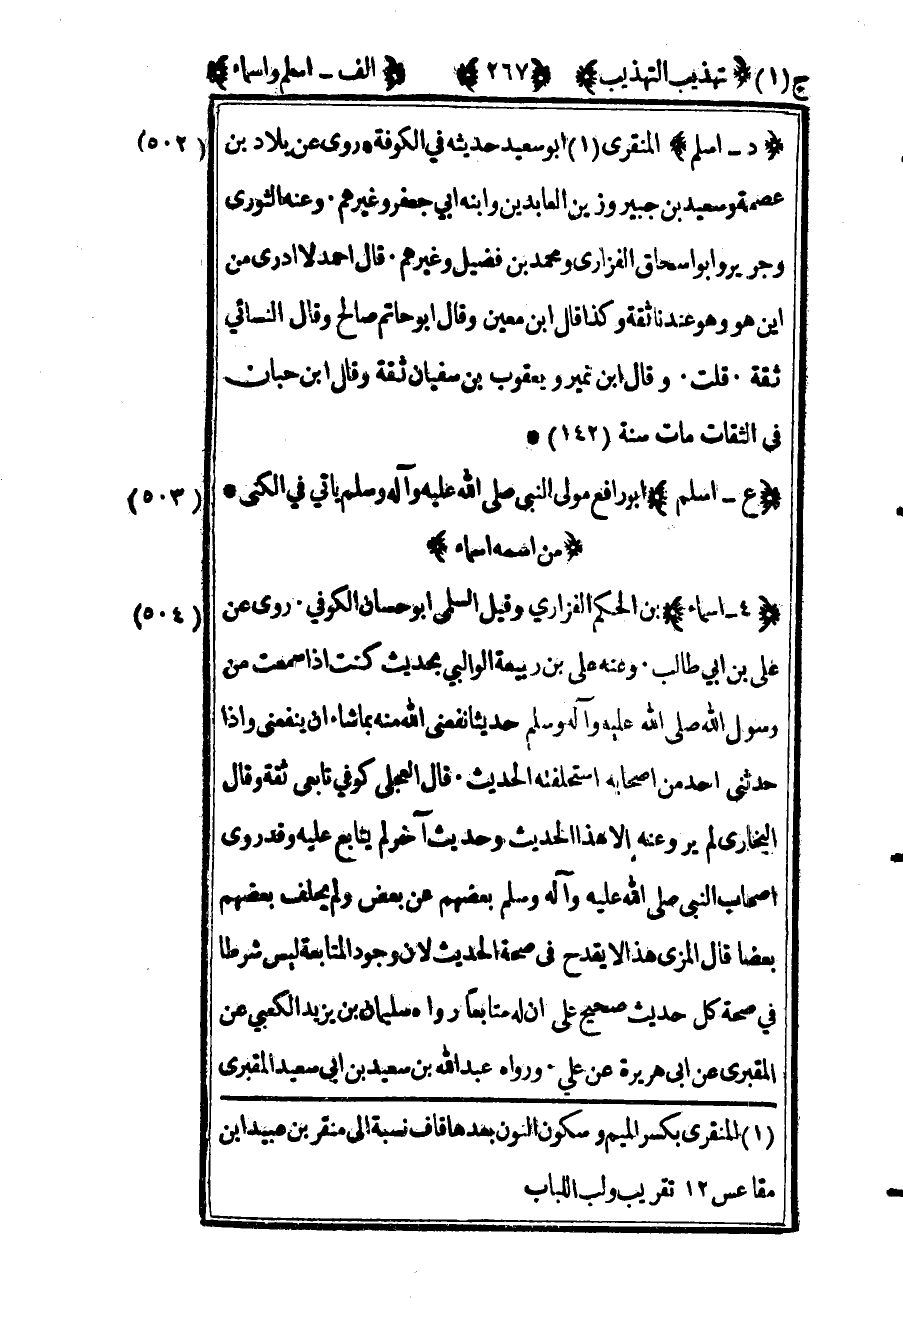 ج (١) ﴿ تهذيب التهذيب ﴾ ﴿ ٢٦٧ ﴾ ﴿ الف ــ اسلم واسماء ﴾
﴿ د ــ اسلم ﴾ المنقرى (١) ابو سعيد حديثه في الكوفة • روى عن بلاد بن (٥٠٢)
عصمة وسعيد بن جبير وزين العابدين وابنه ابي جعفر وغيرهم · وعنه الثورى
وجرير وابو اسحاق الفزارى ومحمد بن فضيل وغيرهم · قال احمد لا ادرى من
اين هو وهو عندنا ثقة وكذا قال ابن معين وقال ابو حاتم صالح وقال النسائي
ثقة · قلت · وقال ابن نمير ويعقوب بن سفيان ثقة وقال ابن حبان
في الثقات مات سنة (١٤٢) •
﴿ ع ــ اسلم ﴾ ابو رافع مولى النبي صلى الله عليه وآله وسلم ياتي في الكنى • (٥٠٣)
﴿ من اسمه اسماء ﴾
﴿ ٤ ــ اسماء ﴾ بن الحكم الفزاري وقيل السلمى ابو حسان الكوفي · روى عن (٥٠٤)
على بن ابي طالب · وعنه على بن ربيعة الوالبي بحديث كنت اذا سمعت من
رسول الله صلى الله عليه وآله وسلم حديثا نفعنى الله منه بما شاء ان ينفعنى واذا
حدثنى احد من اصحابه استحلفته الحديث · قال العجلى كوفي تابعى ثقة وقال
البخارى لم يرو عنه إلا هذا الحديث وحديث آخر لم يتابع عليه وقد روى
اصحاب النبي صلى الله عليه وآله وسلم بعضهم عن بعض ولم يحلف بعضهم
بعضا قال المزى هذا لا يقدح فى صحة الحديث لان وجود المتابعة ليس شرطا
في صحة كل حديث صحيح على ان له متابعاً رواه سليمان بن يزيد الكعبي عن
المقبرى عن ابى هريرة عن علي · ورواه عبد الله بن سعيد بن ابى سعيد المقبرى
(١) المنقرى بكسر الميم وسكون النون بعدها قاف نسبة الى منقر بن عبيد ابن
مقاعس ١٢ تقريب ولب اللباب